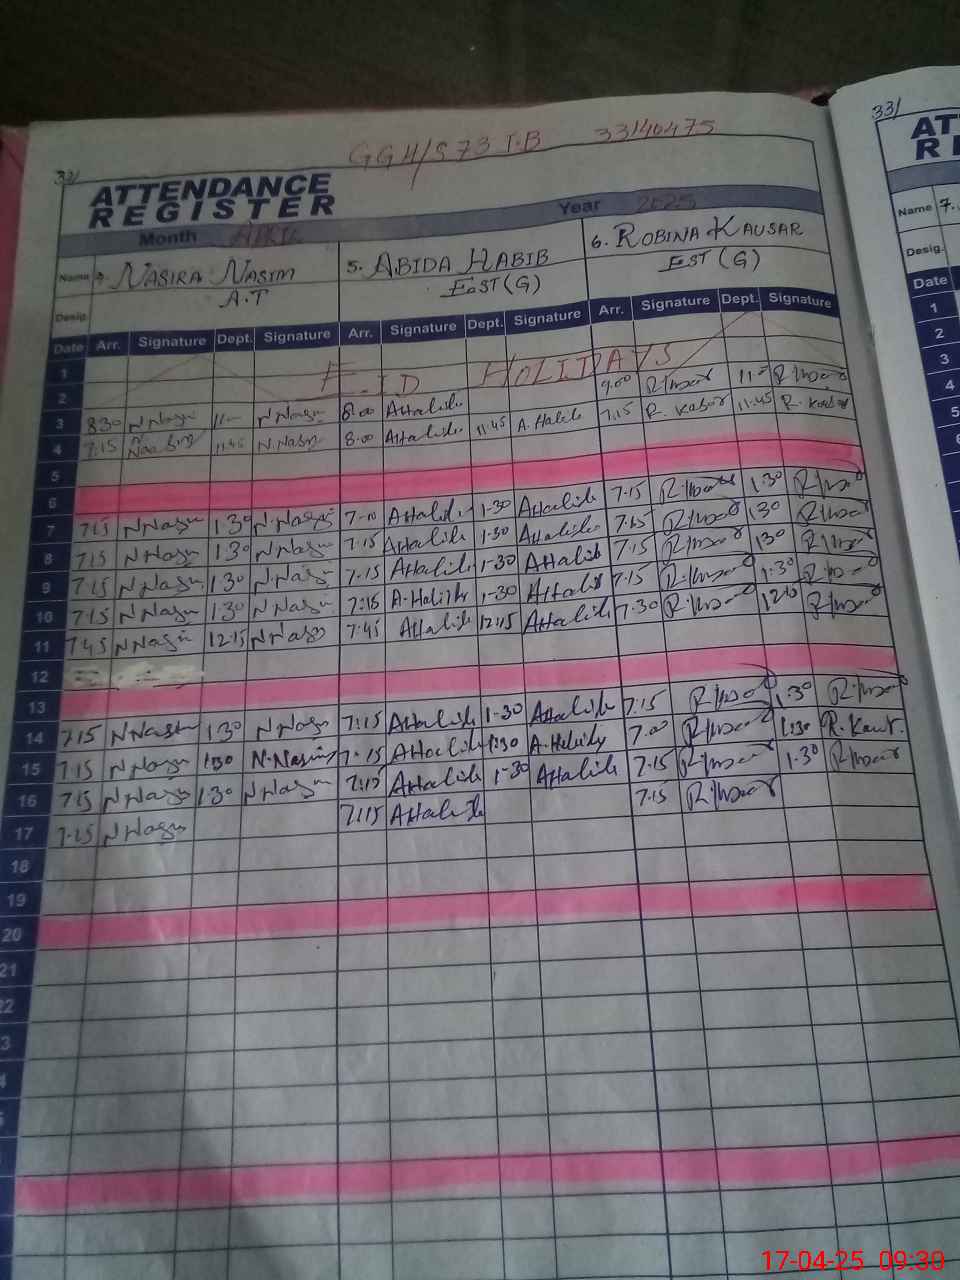 GGH/S 73 J.B 33140475
331
ATTENDANCE
REGISTER
Month APRIL Year 2025
Name 4. NASIRA NASIM 5. ABIDA HABIB 6. ROBINA KAUSAR
Desig. A.T EST (G) EST (G)
Date Arr. Signature Dept. Signature Arr. Signature Dept. Signature Arr. Signature Dept. Signature
1
2 EID HOLIDAYS
3 8:30 N Nasim 11- N Nasim 8:00 AHabib 9:00 R. Kausar 11- R. Kausar
4 7:15 N Nasim 11:45 N. Nasim 8:00 AHabib 11:45 A. Habib 7:15 R. Kausar 11:45 R. Kausar
5
6
7 7:15 N Nasim 1:30 N Nasim AHabib 1-30 AHabib 7-15 R. Kausar 1:30 R. Kausar
8 7:15 N Nasim 1:30 N Nasim 7:15 AHabib 1-30 AHabib 7:15 R. Kausar 1:30 R. Kausar
9 7:15 N Nasim 1:30 N Nasim 7-15 AHabib 1-30 AHabib 7:15 R. Kausar 1:30 R. Kausar
10 7:15 N Nasim 1:30 N Nasim 7:15 A-Habib 1-30 AHabib 7-15 R. Kausar 1:30 R. Kausar
11 7:45 N Nasim 12:15 N Nasim 7:45 AHabib 12:15 AHabib 7:30 R. Kausar R. Kausar
12
13
14 7:15 N Nasim 1:30 N Nasim 7:15 AHabib 1-30 AHabib 7:15 R. Kausar 1:30 R. Kausar
15 7:15 N Nasim 1:30 N. Nasim 7-15 AHabib 1:30 A. Habib 7:00 R. Kausar 1:30 R. Kausar
16 7:15 N Nasim 1:30 N Nasim 7:15 AHabib 1-30 AHabib 7:15 R. Kausar 1:30 R. Kausar
17 7:15 N Nasim 7:15 AHabib 7:15 R. Kausar
18
19
20
21
22
3
4
331
AT
RE
Name 7.
Desig.
Date
1
2
3
4
5
6
17-04-25 09:30